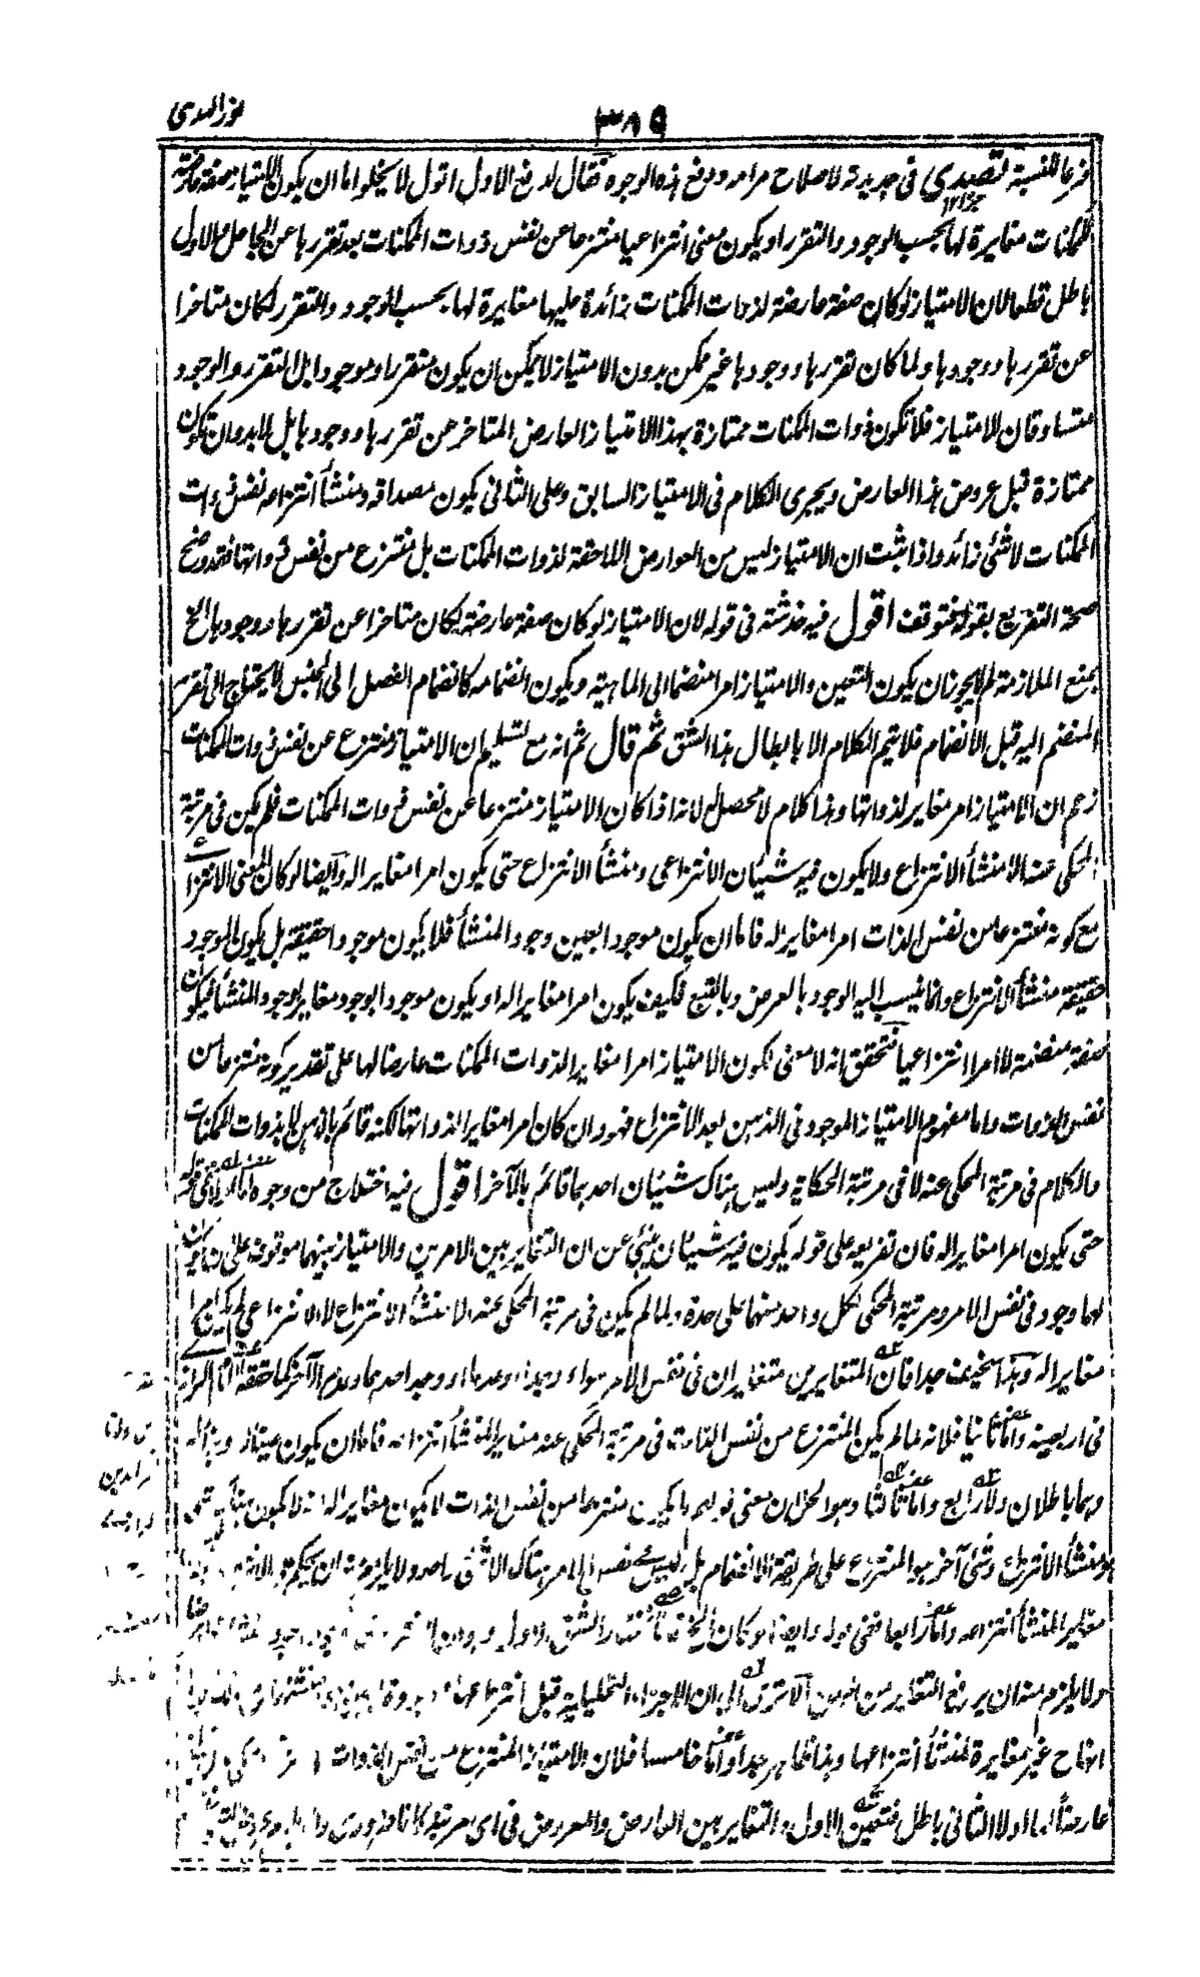 نور الهدى
٣٨٩
فرعا للنسبة تصدى فى جديدته لاصلاح مرامه ودفع هذه الوجوه فقال لدفع الاول اقول لا يخلو اما ان يكون الامتياز صفة عارضة
للممكنات مغايرة لها بحسب الوجود والتقرر او يكون معنى انتزاعيا منتزعا عن نفس ذوات الممكنات بعد تقررها عن الجاعل والاول
باطل قطعا لان الامتياز لو كان صفة عارضة لذوات الممكنات زائدة عليها مغايرة لها بحسب الوجود والتقرر لكان متاخرا
عن تقررها ووجودها ولما كان تقررها ووجودها غير ممكن بدون الامتياز لا يمكن ان يكون متقررا وموجودا بل التقرر والوجود
متساوقان للامتياز فلا تكون ذوات الممكنات ممتازة بهذا الامتياز العارض المتاخر عن تقررها ووجودها بل لا بد وان تكون
ممتازة قبل عروض هذا العارض ويجرى الكلام فى الامتياز السابق وعلى الثانى يكون مصداقه ومنشأ انتزاعه نفس ذوات
الممكنات لا شئ زائد واذا ثبت ان الامتياز ليس من العوارض اللاحقة لذوات الممكنات بل منتزع من نفس ذواتها فقد وضح
صحة التفريع بقوله فتوقف اقول فيه خدشة فى قوله لان الامتياز لو كان صفة عارضة لكان متاخرا عن تقررها ووجودها الخ
بمنع الملازمة لم لا يجوز ان يكون التعين والامتياز امرا منضما الى الماهية ويكون انضمامه كانضمام الفصل الى الجنس لا يحتاج الى تقرر
المنضم اليه قبل الانضمام فلا يتم الكلام الا بابطال هذا الشق ثم قال ثم انه مع تسليم ان الامتياز منتزع عن نفس ذوات الممكنات
زعم ان الامتياز امر مغاير لذواتها وهذا كلام لا محصل له لانه اذا كان الامتياز منتزعا عن نفس ذوات الممكنات فلم يكن فى مرتبة
المحكى عنه الا منشأ الانتزاع ولا يكون فيه شيئان الانتزاعى ومنشأ الانتزاع حتى يكون امرا مغايرا له وايضا لو كان المعنى الانتزاعى
مع كونه منتزعا من نفس الذات امرا مغايرا له فاما ان يكون موجودا بعين وجود المنشأ فلا يكون موجودا حقيقة بل يكون الموجود
حقيقة منشأ الانتزاع وانما ينسب اليه الوجود بالعرض وبالتبع فكيف يكون امرا مغايرا له او يكون موجودا بوجود مغاير لوجود المنشأ فيكون
صفة منضمة لا امرا انتزاعيا فتحقق انه لا معنى لكون الامتياز امرا مغايرا لذوات الممكنات عارضا لها على تقدير كونه منتزعا من
نفس الذوات واما مفهوم الامتياز الموجود فى الذهن بعد الانتزاع فهو وان كان امرا مغايرا لذواتها لكنه قائم بالذهن لا بذوات الممكنات
والكلام فى مرتبة المحكى عنه لا فى مرتبة الحكاية وليس هناك شيئان احدهما قائم بالآخر اقول فيه اختلاج من وجوه اما اولا ففى قوله
حتى يكون امرا مغايرا له فان تفريعه على قوله يكون فيه شيئان ينبئ عن ان التغاير بين الامرين والامتياز بينهما موقوف على ان يكون
لهما وجود فى نفس الامر ومرتبة المحكى لكل واحد منهما على حدة ولما لم يكن فى مرتبة المحكى عنه الا منشأ الانتزاع لا الانتزاعى لم يكن امرا
مغايرا له وهذا سخيف جدا فان المتغايرين متغايران فى نفس الامر سواء وجدا او عدما او وجد احدهما وعدم الآخر كما حققه الامام الرازى
فى اربعينه واما ثانيا فلانه لما لم يكن المنتزع من نفس الذات فى مرتبة المحكى عنه مغايرا لمنشأ انتزاعه فاما ان يكون عينا له او جزأ له
وهما باطلان ولا رابع واما ثالثا وهو الحل ان معنى قولهم ما يكون منتزعا من نفس الذات لا يكون مغايرا له انه لا يكون هناك شئ
هو منشأ الانتزاع وشئ آخر هو المنتزع على طريقة الانضمام بل ليس فى نفس الامر هناك الا شئ واحد ولا يلزم منه ان يحكم
مغايرا لمنشأ انتزاعه واما رابعا ففى قوله وايضا لو كان الخ فانا نختار الشق الاول
ولا يلزم منه ان يرفع التغاير من البين الا ترى الى ان الاجزاء التحليلية قبل انتزاعها
غير مغايرة لمنشأ انتزاعها وهذا ظاهر جدا واما خامسا فلان الامتياز المنتزع من نفس الذوات
عارضا لها او لا الثانى باطل فتعين الاول والتغاير بين العارض والمعروض فى اى مرتبة كانا ضرورى